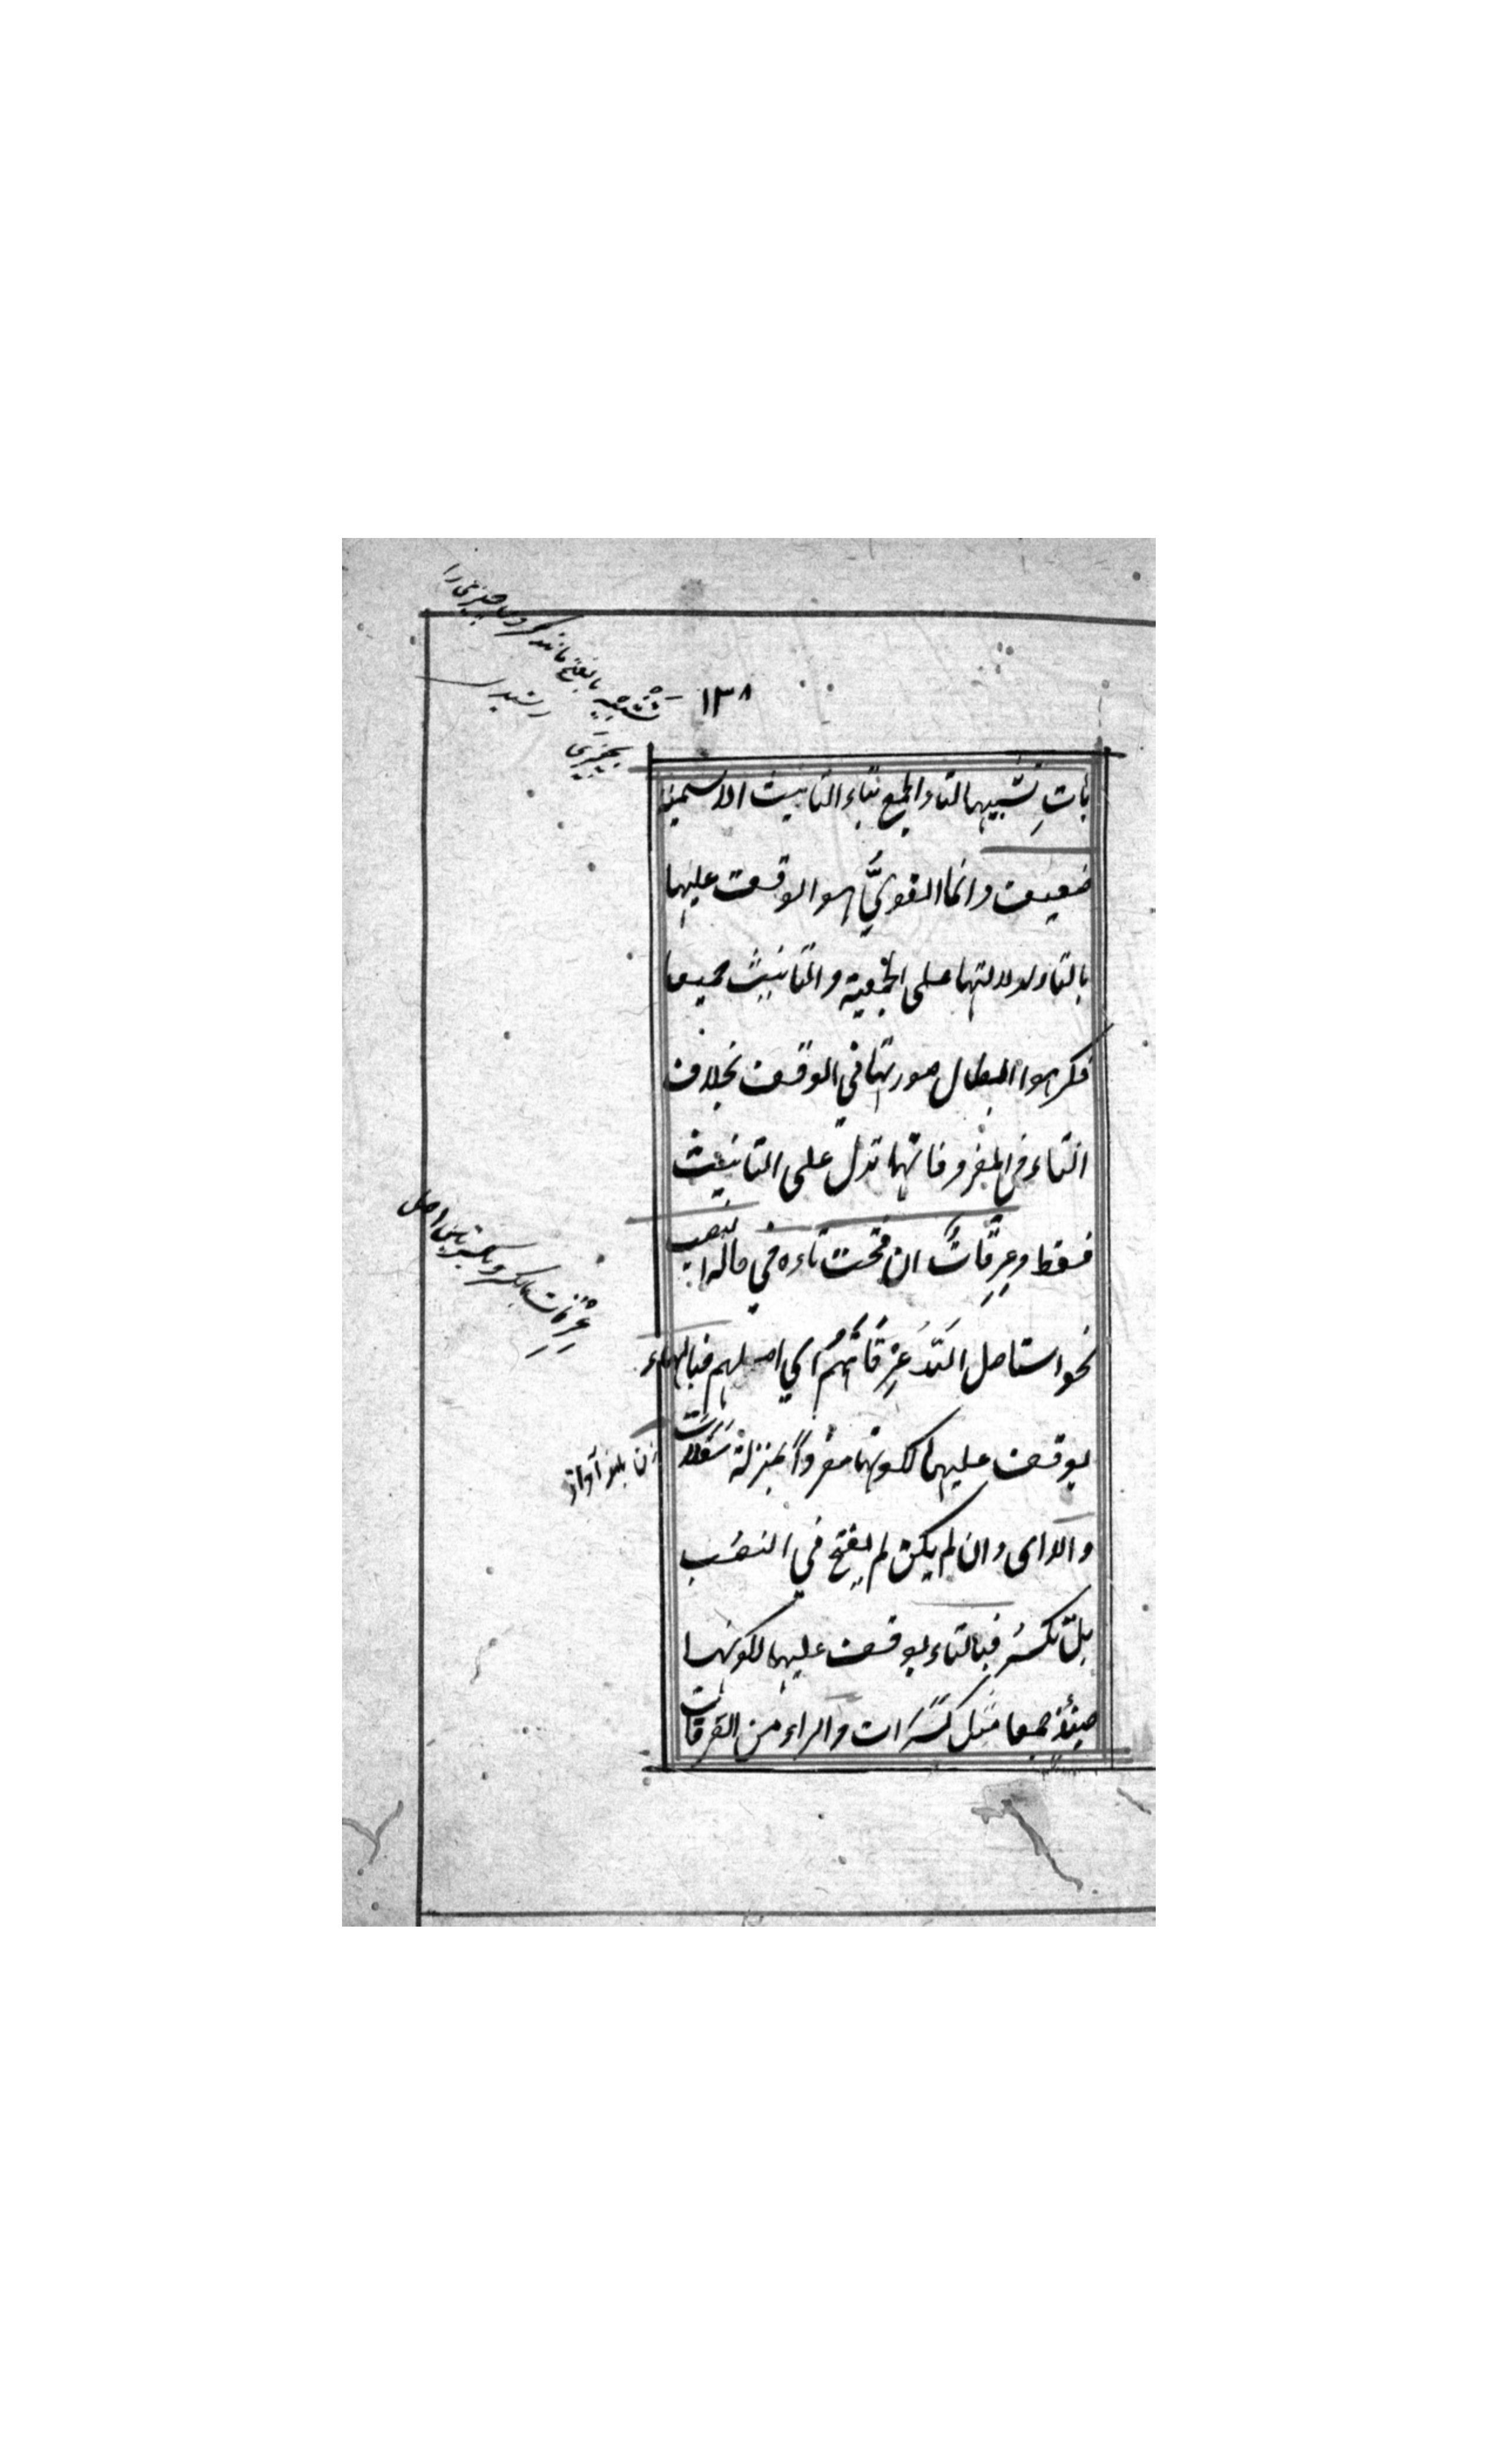 ١٣٨
تشبیه بالفتح مانند کردن چیزی را
بچیزی
باتِ تشبيها لتاء الجمع بتاء التانيث الاسمية
ضعيف وانما القويُّ هو الوقف عليها
بالتاء لدلالتها على الجمعية والتانيث جميعا
فكرهوا ابطال صورتها في الوقف بخلاف
التاء في المفرد فانها تدل على التانيث
فقط وعِرِقَاتٌ ان فتحت تاءه في حالة النصب
نحو استاصل اللّهُ عِرْقَاتَهُم اي اصلهم فبالهاء
يوقف عليها لكونها مفرداً بمنزلة سَعْلَات
والا اى وان لم يكن لم يفتح في النصب
بل تكسر فبالتاء يوقف عليها لكونها
حينئذ جمعا مثل كَسَرَات والراء من العرقات
عِرِقات بالکسر وبکسرتین اصل
زن بلند آواز